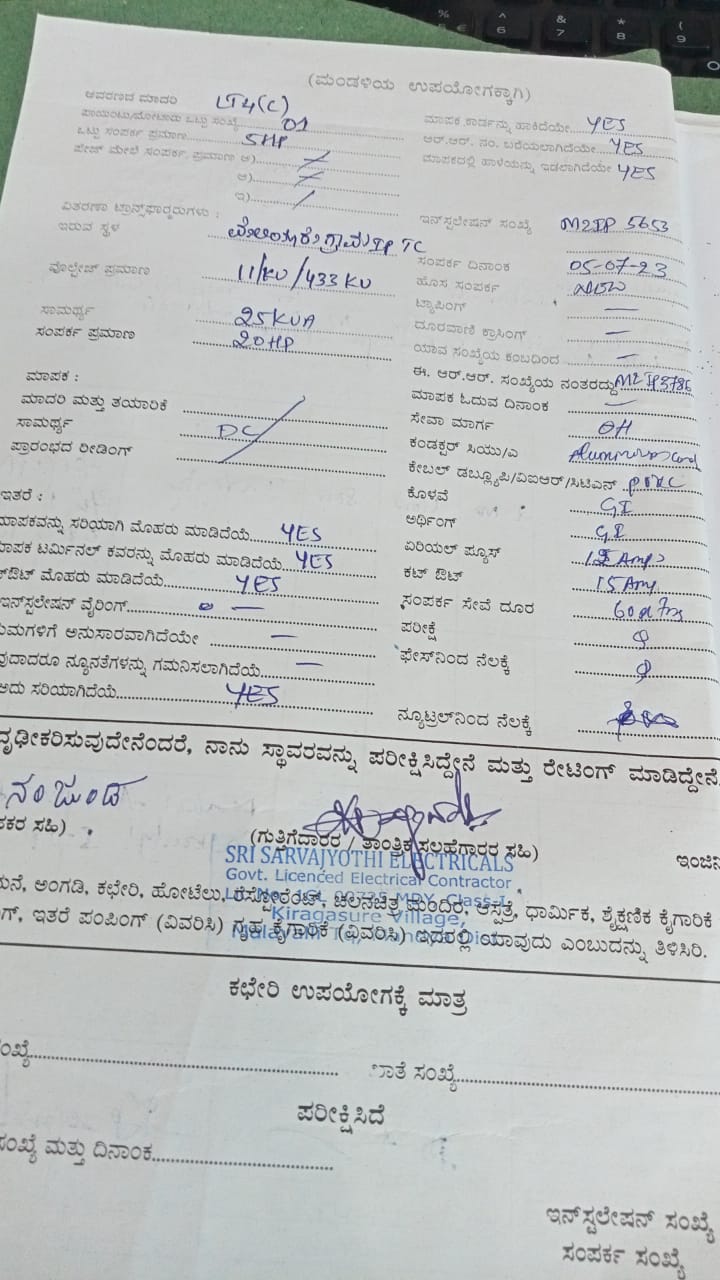 (ಮಂಡಳಿಯ ಉಪಯೋಗಕ್ಕಾಗಿ)
ಆವರಣದ ಮಾದರಿ LT4(C)
ಪಾಯಿಂಟು/ಮೋಟಾರು ಒಟ್ಟು ಸಂಖ್ಯೆ 01
ಒಟ್ಟು ಸಂಪರ್ಕ ಪ್ರಮಾಣ 5HP
ಪೇಜ್ ಮೇಲೆ ಸಂಪರ್ಕ ಪ್ರಮಾಣ ಅ)
ಆ)
ಇ)
ವಿತರಣಾ ಟ್ರಾನ್ಸ್‌ಫಾರ್ಮರುಗಳು :
ಇರುವ ಸ್ಥಳ IP TC
ವೊಲ್ಟೇಜ್ ಪ್ರಮಾಣ 11/KV/433 KV
ಸಾಮರ್ಥ್ಯ 25KVA
ಸಂಪರ್ಕ ಪ್ರಮಾಣ 20HP
ಮಾಪಕ :
ಮಾದರಿ ಮತ್ತು ತಯಾರಿಕೆ
ಸಾಮರ್ಥ್ಯ DC
ಪ್ರಾರಂಭದ ರೀಡಿಂಗ್
ಇತರೆ :
ಮಾಪಕವನ್ನು ಸರಿಯಾಗಿ ಮೊಹರು ಮಾಡಿದೆಯೆ YES
ಮಾಪಕ ಟರ್ಮಿನಲ್ ಕವರನ್ನು ಮೊಹರು ಮಾಡಿದೆಯೆ YES
ಔಟ್ ಮೊಹರು ಮಾಡಿದೆಯೆ YES
ಇನ್‌ಸ್ಟಲೇಷನ್ ವೈರಿಂಗ್ —
ಯಮಗಳಿಗೆ ಅನುಸಾರವಾಗಿದೆಯೇ —
ವುದಾದರೂ ನ್ಯೂನತೆಗಳನ್ನು ಗಮನಿಸಲಾಗಿದೆಯೆ —
ಅದು ಸರಿಯಾಗಿದೆಯೆ YES
ಮಾಪಕ ಕಾರ್ಡನ್ನು ಹಾಕಿದೆಯೇ YES
ಆರ್.ಆರ್. ನಂ. ಬರೆಯಲಾಗಿದೆಯೇ YES
ಮಾಪಕದಲ್ಲಿ ಹಾಳೆಯನ್ನು ಇಡಲಾಗಿದೆಯೇ YES
ಇನ್‌ಸ್ಟಲೇಷನ್ ಸಂಖ್ಯೆ M2IP 5653
ಸಂಪರ್ಕ ದಿನಾಂಕ 05-07-23
ಹೊಸ ಸಂಪರ್ಕ
ಟ್ಯಾಪಿಂಗ್ —
ದೂರವಾಣಿ ಕ್ರಾಸಿಂಗ್ —
ಯಾವ ಸಂಖ್ಯೆಯ ಕಂಬದಿಂದ —
ಈ. ಆರ್.ಆರ್. ಸಂಖ್ಯೆಯ ನಂತರದ್ದು M2IP3786
ಮಾಪಕ ಓದುವ ದಿನಾಂಕ —
ಸೇವಾ ಮಾರ್ಗ OH
ಕಂಡಕ್ಟರ್ ಸಿಯು/ಎ
ಕೇಬಲ್ ಡಬ್ಲ್ಯೂಪಿ/ವಿಐಆರ್/ಸಿಟಿಎಸ್ PVC
ಕೊಳವೆ GI
ಅರ್ಥಿಂಗ್ GI
ಏರಿಯಲ್ ಪ್ಯೂಸ್ Amp
ಕಟ್ ಔಟ್ 15 Amp
ಸಂಪರ್ಕ ಸೇವೆ ದೂರ
ಪರೀಕ್ಷೆ
ಫೇಸ್‌ನಿಂದ ನೆಲಕ್ಕೆ
ನ್ಯೂಟ್ರಲ್‌ನಿಂದ ನೆಲಕ್ಕೆ
ದೃಢೀಕರಿಸುವುದೇನೆಂದರೆ, ನಾನು ಸ್ಥಾವರವನ್ನು ಪರೀಕ್ಷಿಸಿದ್ದೇನೆ ಮತ್ತು ರೇಟಿಂಗ್ ಮಾಡಿದ್ದೇನೆ.
ನಂಜುಂಡ
ಕರ ಸಹಿ) (ಗುತ್ತಿಗೆದಾರರ / ತಾಂತ್ರಿಕ ಸಲಹೆಗಾರರ ಸಹಿ) ಇಂಜಿನಿ
SRI SARVAJYOTHI ELECTRICALS
Govt. Licenced Electrical Contractor
Kiragasure Village,
ಮನೆ, ಅಂಗಡಿ, ಕಛೇರಿ, ಹೋಟೆಲು, ರೆಸ್ಟೋರೆಂಟ್, ಚಲನಚಿತ್ರ ಮಂದಿರ, ಆಸ್ಪತ್ರೆ, ಧಾರ್ಮಿಕ, ಶೈಕ್ಷಣಿಕ ಕೈಗಾರಿಕೆ
ಗ್, ಇತರೆ ಪಂಪಿಂಗ್ (ವಿವರಿಸಿ) ಗೃಹ ಕೈಗಾರಿಕೆ (ವಿವರಿಸಿ) ಇದರಲ್ಲಿ ಯಾವುದು ಎಂಬುದನ್ನು ತಿಳಿಸಿರಿ.
ಕಛೇರಿ ಉಪಯೋಗಕ್ಕೆ ಮಾತ್ರ
ಖಾತೆ ಸಂಖ್ಯೆ
ಪರೀಕ್ಷಿಸಿದೆ
ಸಂಖ್ಯೆ ಮತ್ತು ದಿನಾಂಕ
ಇನ್‌ಸ್ಟಲೇಷನ್ ಸಂಖ್ಯೆ
ಸಂಪರ್ಕ ಸಂಖ್ಯೆ